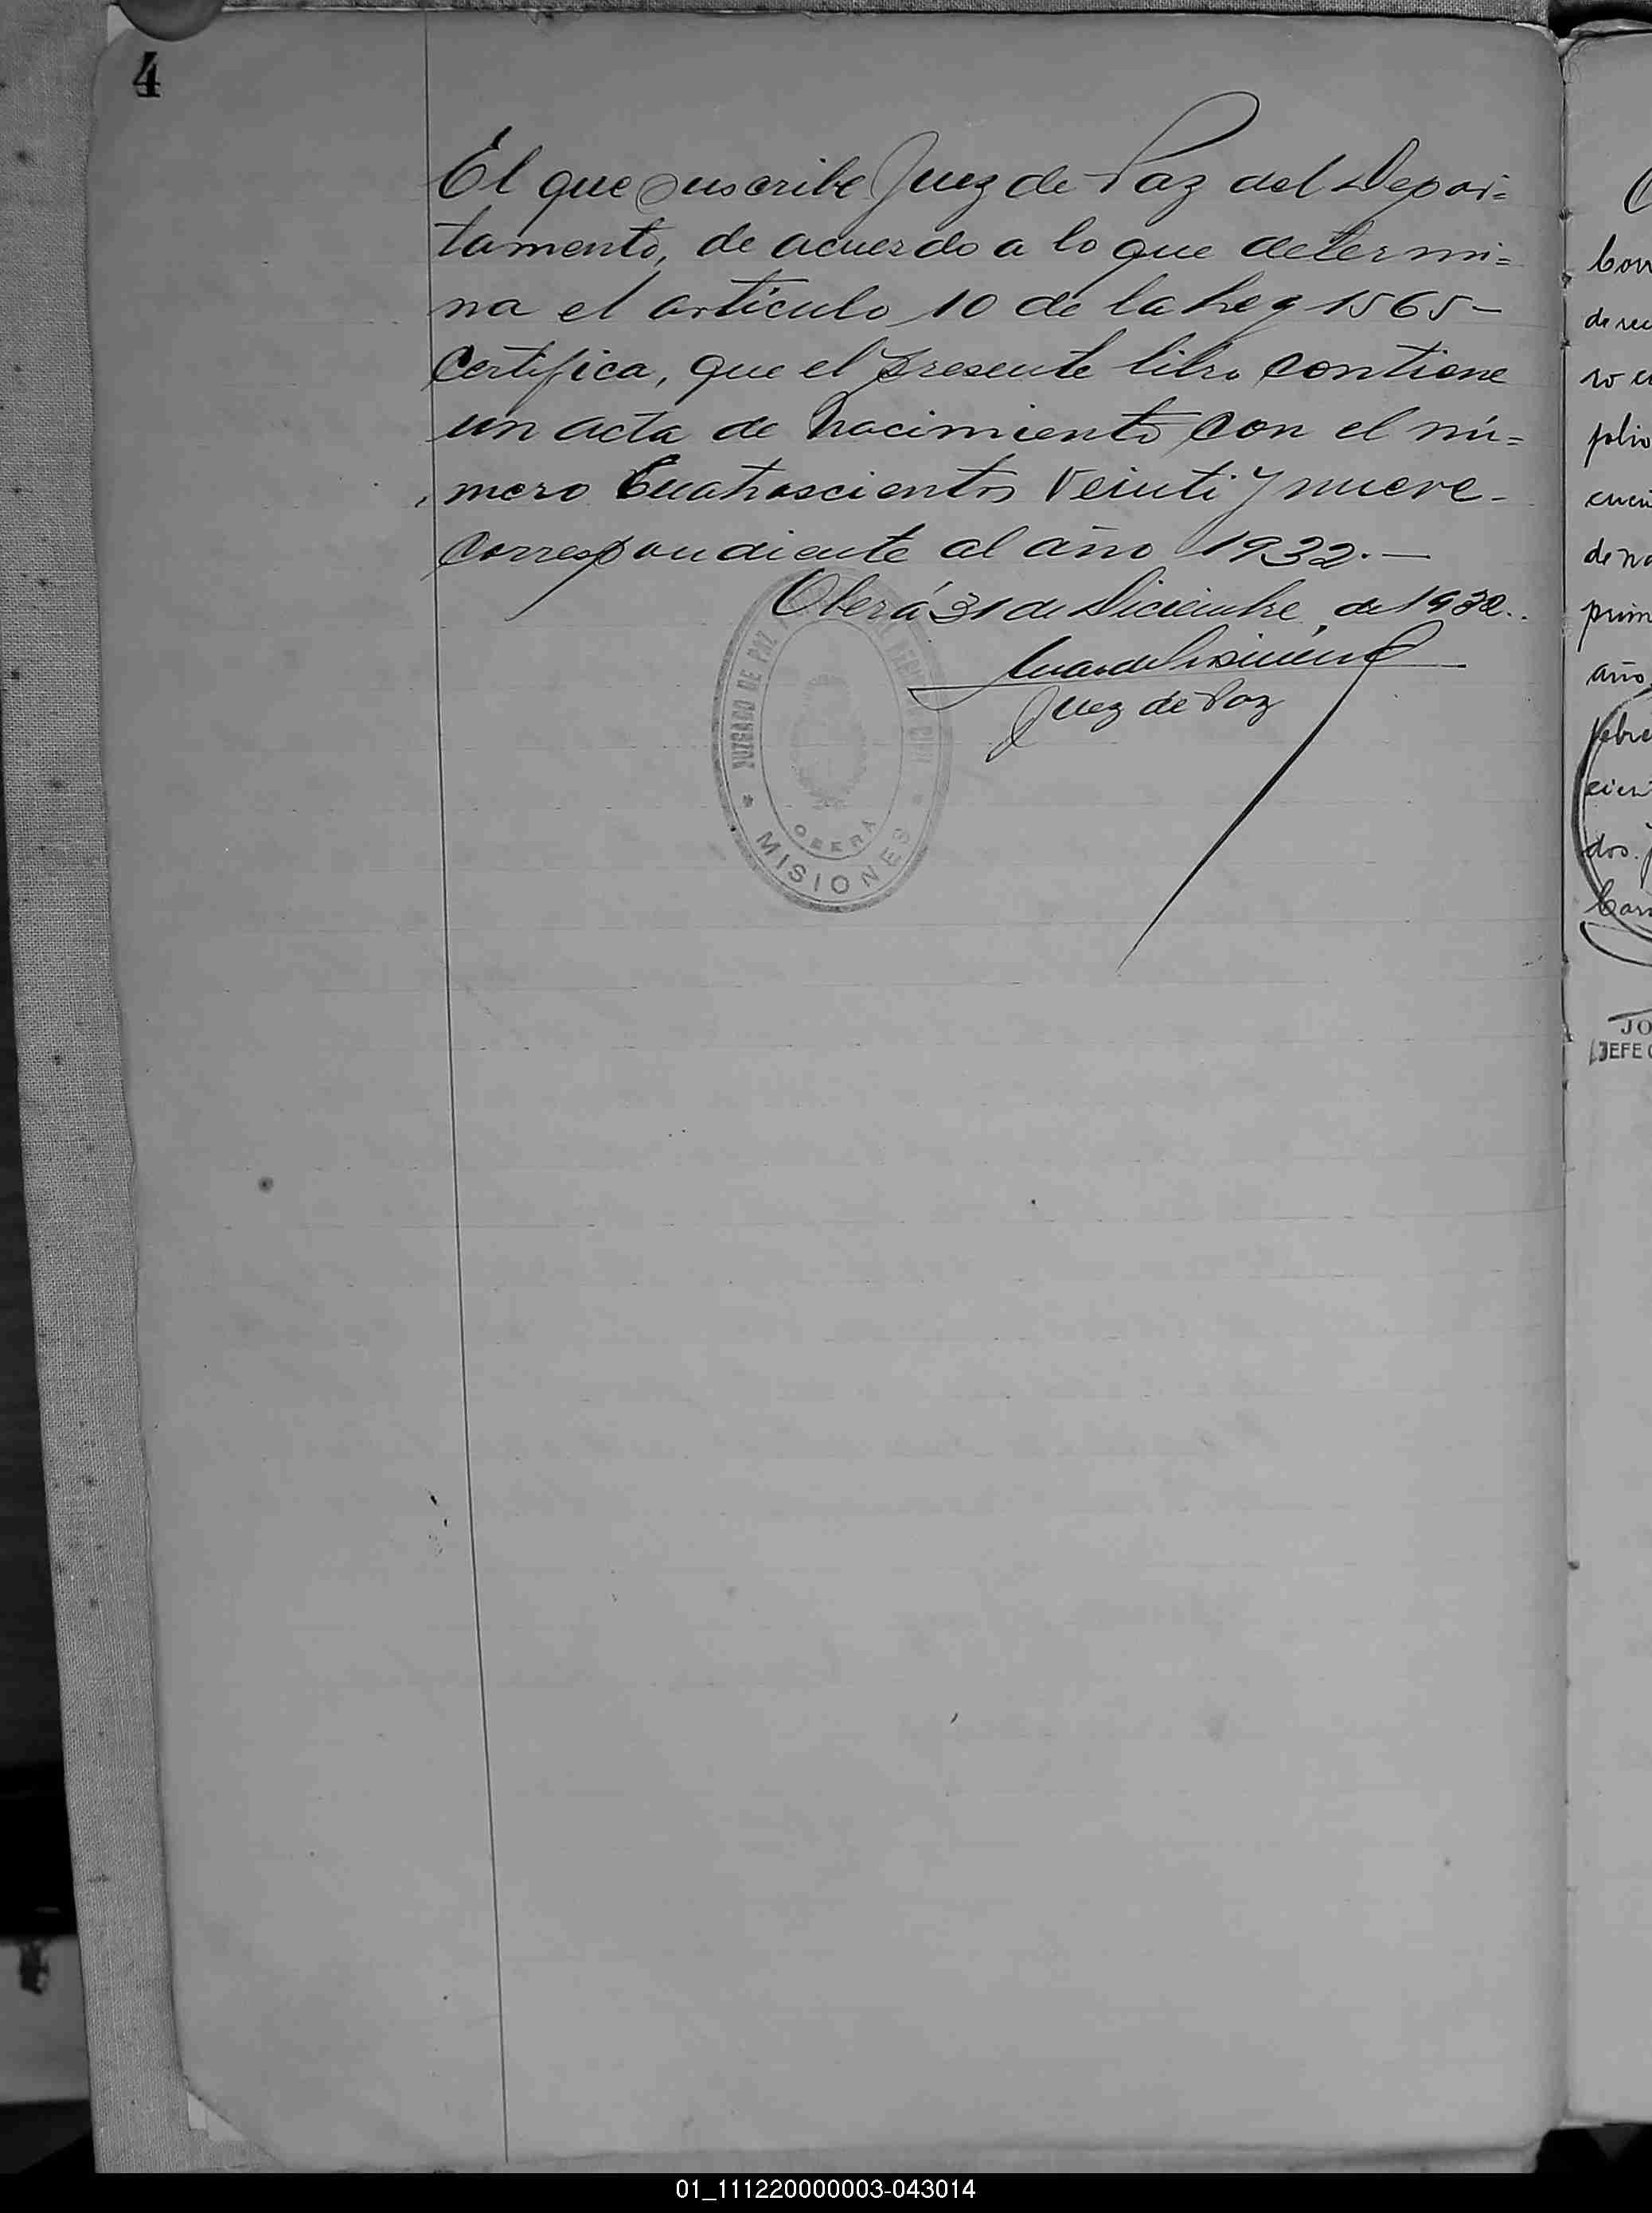 4
El que suscribe Juez de Paz del Depar=
tamento, de acuerdo a lo que determi=
na el artículo 10 de la Ley 1565-
Certifica, que el presente libro contiene
un acta de Nacimiento con el nú=
mero Cuatroscientos Veinti y nueve-
correspondiente al año 1932.-
Oberá 31 de Diciembre, de 1932.
Juez de Paz
JUZGADO DE PAZ
CIVIL
OBERÁ
MISIONES
de rec
ro
folio
de na
prim
año,
febre
dos.
JO
JEFE
01_111220000003-043014